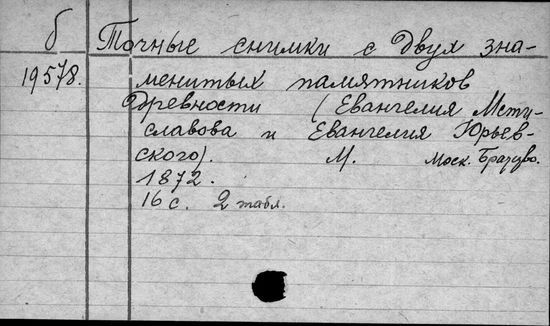 б Точные снимки с двух зна-
19578. менитых памятников
древности (Евангелия Мсти-
славова и Евангелия Юрьев-
ского). М. Моск. Братство.
1872.
16 с. 2 табл.